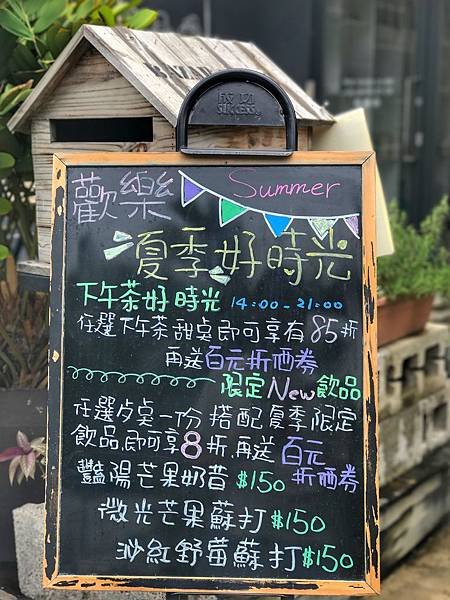 SUCCESS
歡樂 Summer
夏季好時光
下午茶好時光 14:00-21:00
任選下午茶甜桌即可享有85折
再送百元折價券
限定New飲品
任選夕桌一份 搭配夏季限定
飲品,即可享8折,再送百元
折價券
豔陽芒果奶昔 $150
微光芒果蘇打 $150
沁紅野莓蘇打 $150